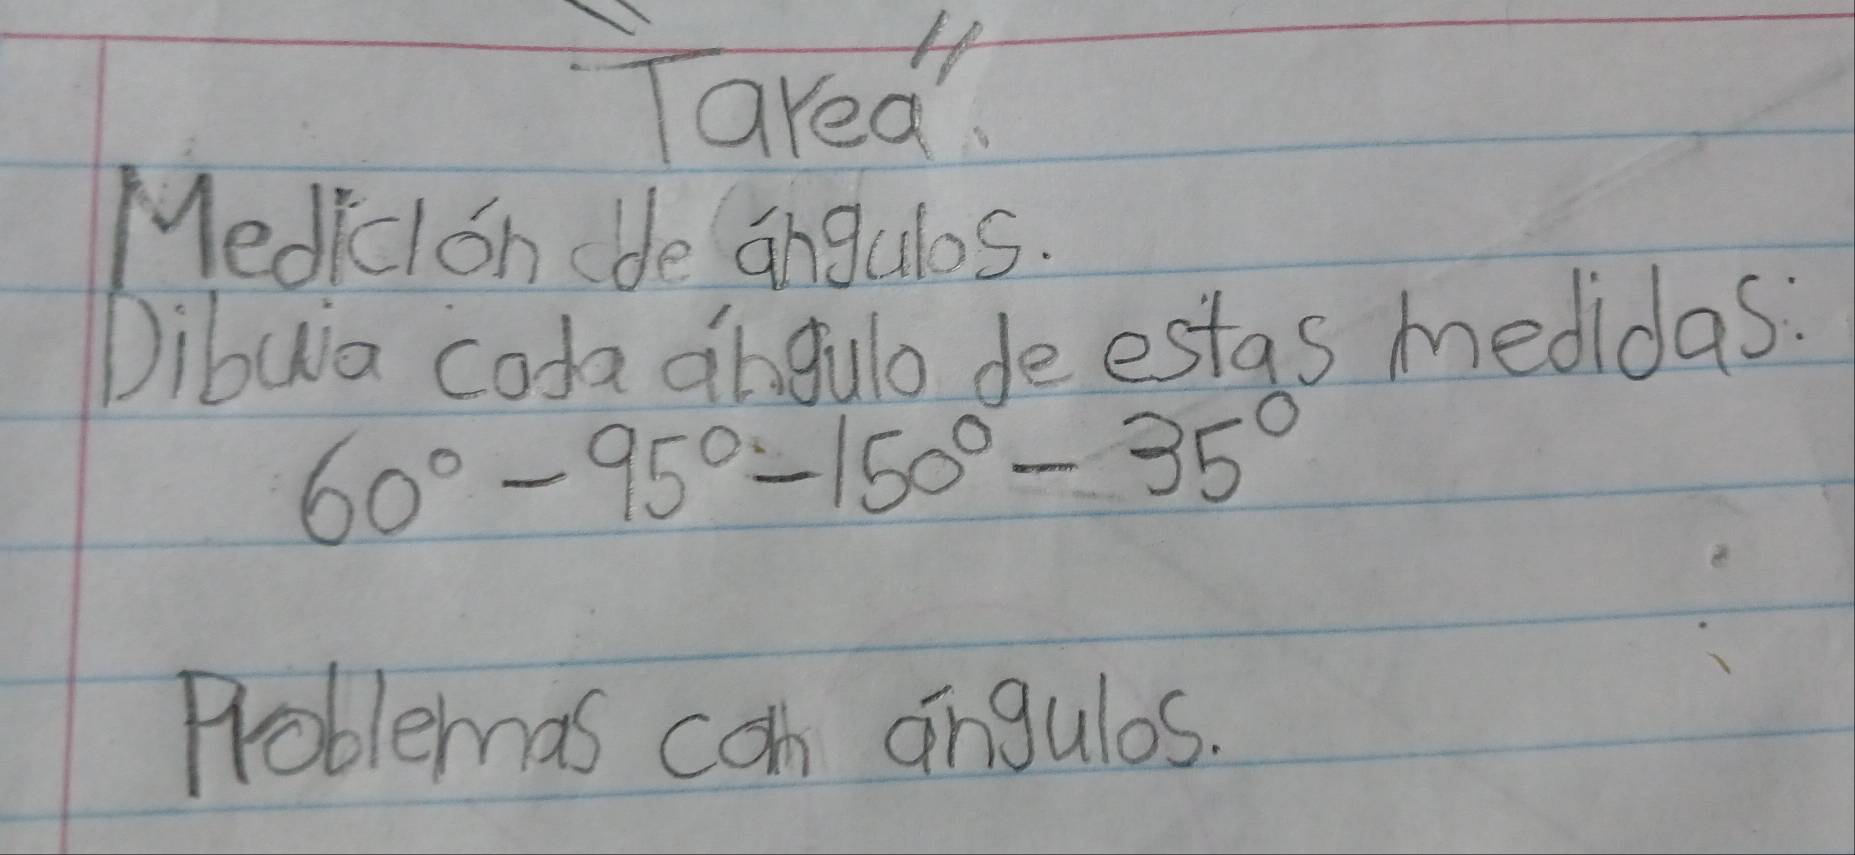 "Tarea".
Medición de ángulos.
Dibuja cada ángulo de estas medidas:
60° - 95° - 150° - 35°
Problemas con ángulos.